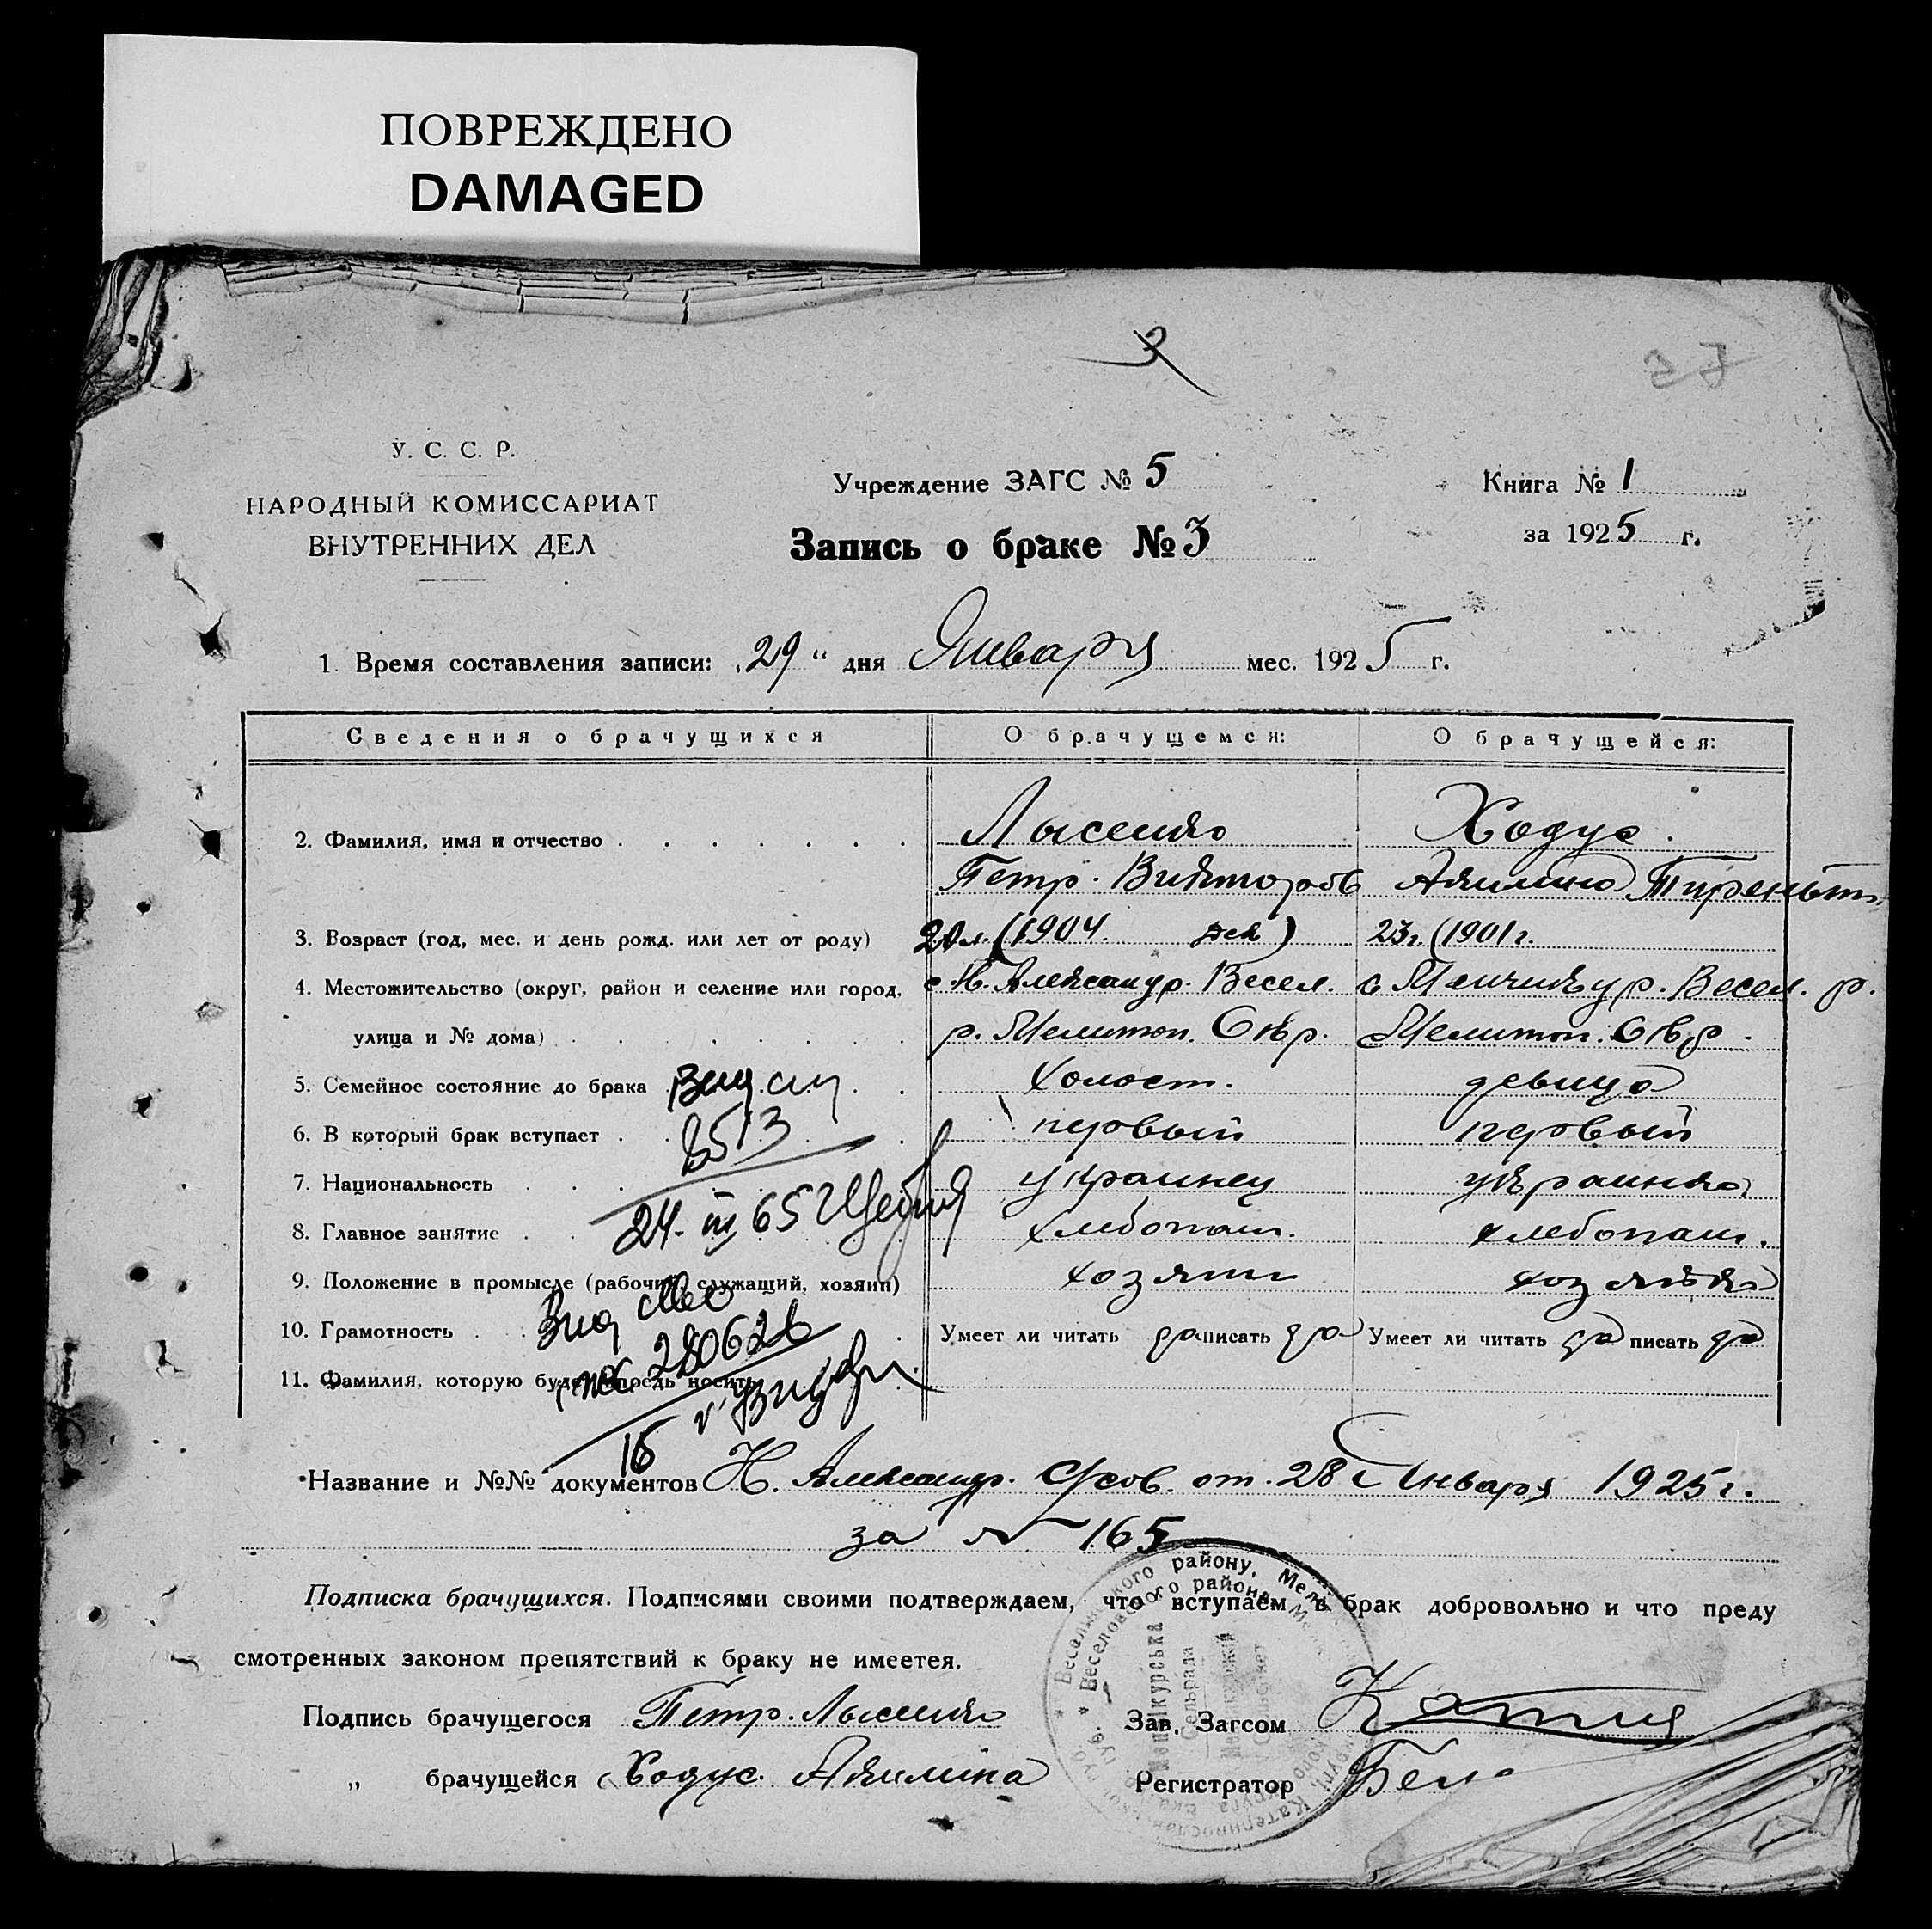 ПОВРЕЖДЕНО
DAMAGED
У. С. С. Р.
НАРОДНЫЙ КОМИССАРИАТ
ВНУТРЕННИХ ДЕЛ
Учреждение ЗАГС № 5
Запись о браке № 3
Книга № 1
за 1925 г.
1. Время составления записи: „29“ дня Января мес. 1925 г.
Сведения о брачущихся О брачущемся: О брачущейся:
2. Фамилия, имя и отчество Лысенко Ходус.
Петр. Викторов Акилина
3. Возраст (год, мес. и день рожд. или лет от роду) 20 л. (1904. дек) 23 г. (1901 г.
4. Местожительство (округ, район и селение или город, с. Н. Александр. Весел. с Менчикур. Весел. р.
улица и № дома) р. Мелитоп. Окр. Мелитоп. Окр.
5. Семейное состояние до брака холост. девица
6. В который брак вступает первый первый
8513
7. Национальность украинец украинка
24. III 65 г
8. Главное занятие хлебопаш. хлебопаш.
9. Положение в промысле (рабочий, служащий, хозяин) хозяин хозяйка
10. Грамотность Умеет ли читать да писать да Умеет ли читать да писать да
280626
11. Фамилия, которую будет впредь носить
16
Название и №№ документов Н. Александр. с/сов. от 28 Января 1925 г.
за № 165
Подписка брачущихся. Подписями своими подтверждаем, что вступаем в брак добровольно и что преду
смотренных законом препятствий к браку не имеетея.
Подпись брачущегося Петр. Лысенко Зав. Загсом
„ брачущейся Ходус. Акилина Регистратор
району,
Веселовского района
Сельрада